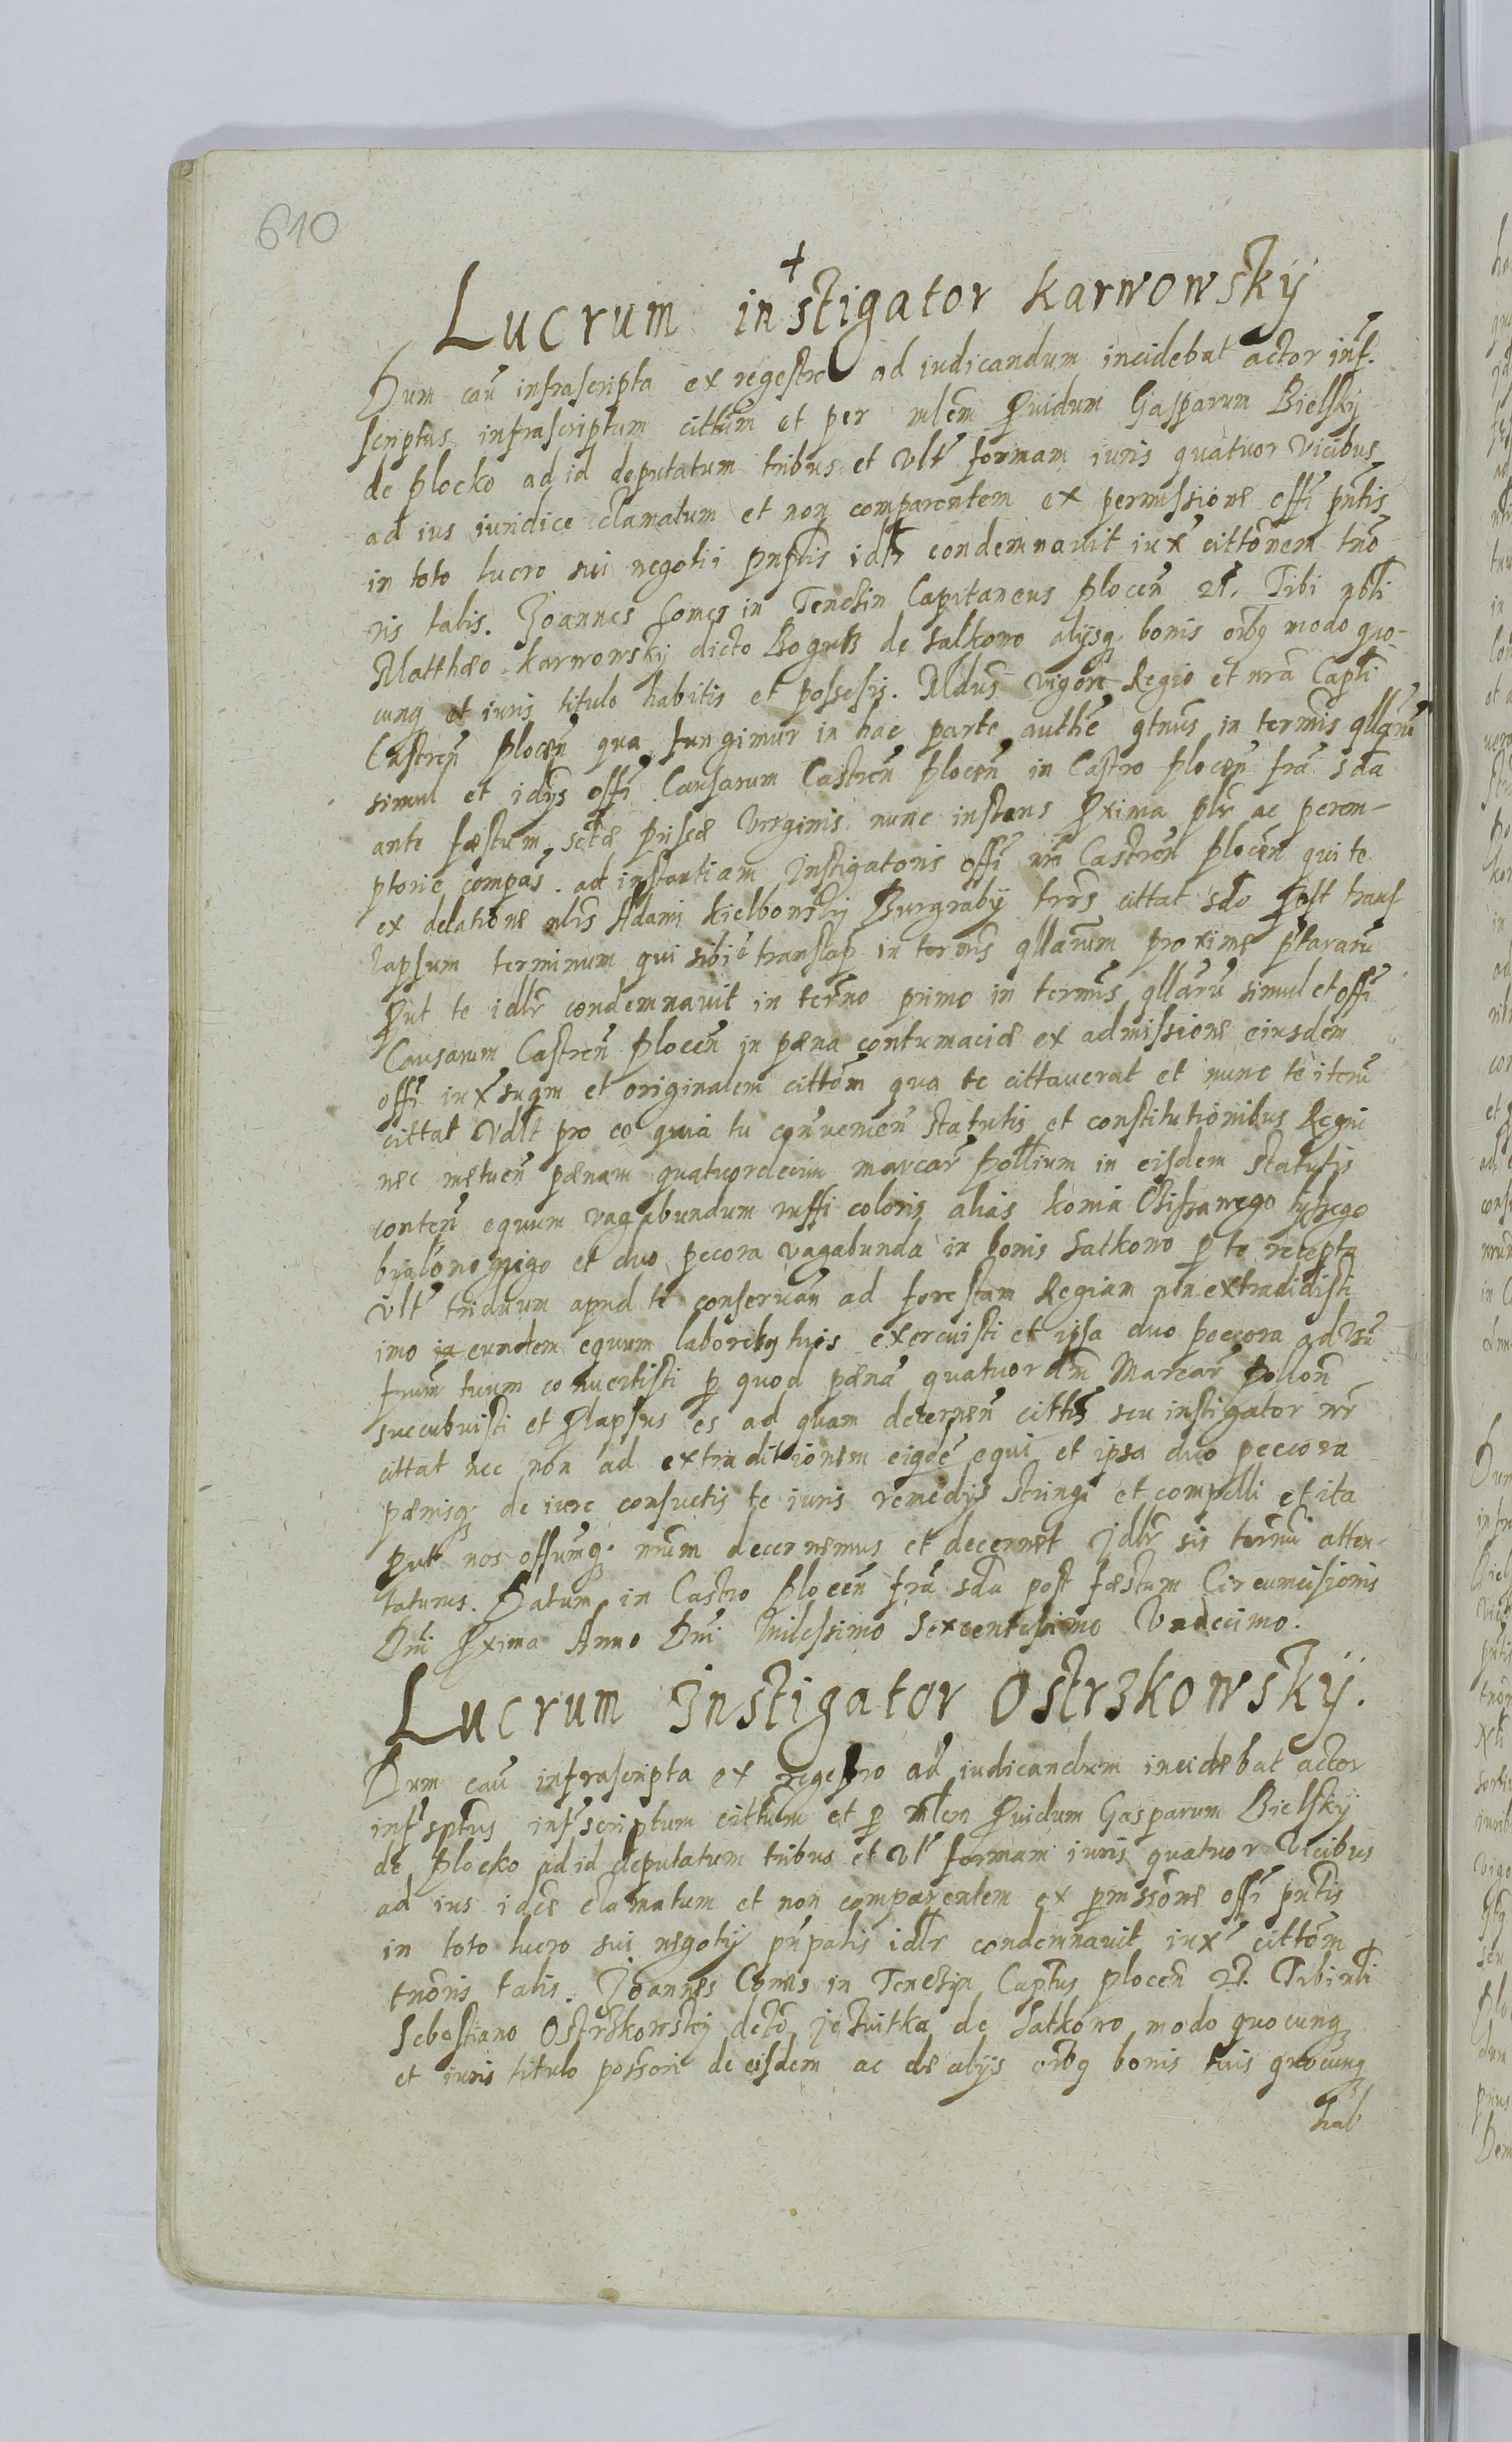 610
+
Lucrum instigator Karwowsky
Dum cau infrascripta ex regestro ad iudicandum incidebat actor inf.
scriptus infrascriptum cittum et per mlem Pvidum Gasparum Bielsky
de Plocko ad id deputatum tribus et vltr formam iuris quatuor vicibus
ad ius iuridice clamatum et non comparentem ex permissione offi pntis
in toto lucro sui negotii idlr condemnavit iuxt cittonem tno-
ris talis. Joannes Comes in Tenczin Capitaneus Plocen Tibi nbli
Matthæo Karwowsky dicto Bogusz de Satkowo alysq bonis oibq modo quo-
cunq et iuris titulo habitis et possessis. Mdus vigore Regio et nra Capli
Castren Plocen qua fungimur in hac parte authe qtnus in termis qllaru
simul et idys offi Causarum Castren Plocen in Castro Plocen fra sda
ante fæstum sctæ Prissæ Virginis nunc instans Pxima plr ac perem-
ptorie compas. ad instantiam Instigatoris offi nri Castren Plocen qui te
ex delatione nlis Adami Kielbowsky Burgraby trrs cittat sdo Post trans
lapsum terminum qui sibi e translap in termis qllarum proxime
Put te idlr condemnavit in termo primo in termis qllaru simul et offi
Causarum Castren Plocen in pæna contumaciæ ex admissione eiusdem
offi iuxt suam et originalem cittom qua te cittaverat et nunc te iterum
cittat vdlt pro eo quia tu convenien statutis et constitutionibus Regni
nec metuen pænam quatuordecim marcar Pollium in eisdem statutis
conten equum vagabundum ruffi coloris alias konia
et duo pecora vagabunda in bonis Satkowo p te recepta
vltr triduum apud te conservan ad forestam Regiam non extradidisti
imo eundem equum laboribq tuis exercuisti et ipsa duo peccora ad vsu
frum tuum convertisti p quod pæna quatuor dm Marcar Pollon
succubuisti et Plapsus es ad quam decernen citts seu instigator nr
cittat nec non ad extraditionem eiqde equi et ipsa duo peccora
pænisq de iure consuetis te iuris remedys stringi et compelli et ita
put nos offumq nrum decernemus et decernet Idlr sis termu atten-
taturus. Datum in Castro Plocen fra sda post fæstum Circumcisionis
Dni Pxima Anno Dni Milessimo Sexcentessimo Vndecimo.
Lucrum Instigator Ostrzkowsky.
Dum cau infrascripta ex regestro ad iudicandum incidebat actor
inf sptus inf scriptum cittum et p mlem Pvidum Gasparum Bielsky
de Plocko ad id deputatum tribus et vltr formam iuris quatuor vicibus
ad ius idce clamatum et non comparentem ex pmissione offi pntis
in toto lucro sui negoty pnpalis idlr condemnavit iuxt cittom
tnoris talis. Joannes Comes in Tenczin Captus Plocen Tibi nbli
Sebastiano Ostrzkowsky dcto de Satkowo modo quocunq
et iuris titulo possori de eisdem ac de alys oibq bonis tuis quocunq
hab